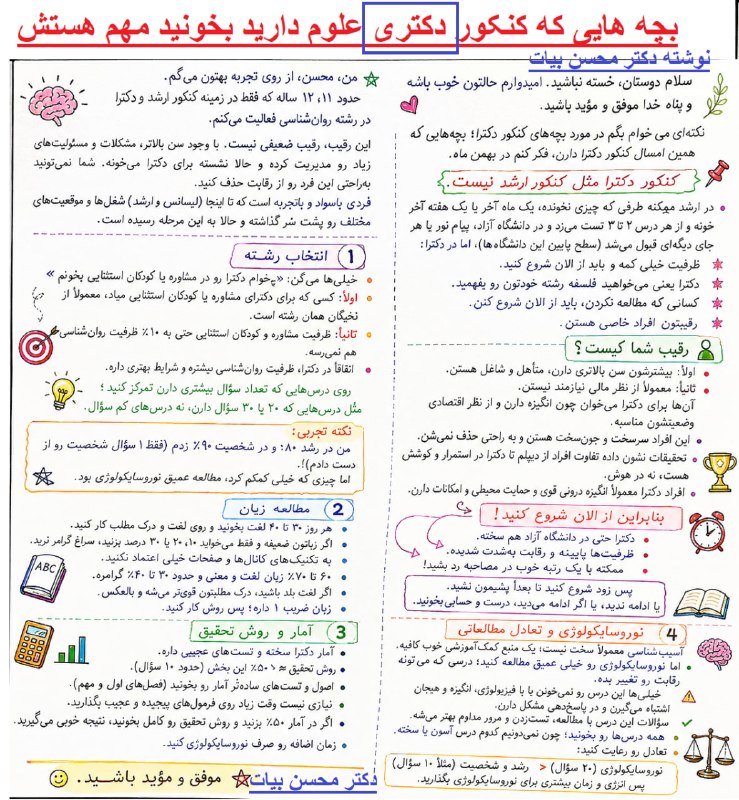 بچه هایی که کنکور دکتری علوم دارید بخونید مهم هستش
نوشته دکتر محسن بیات
سلام دوستان، خسته نباشید. امیدوارم حالتون خوب باشه
و پناه خدا موفق و مؤید باشید.
نکته‌ای می خوام بگم در مورد بچه‌های کنکور دکترا؛ بچه‌هایی که
همین امسال کنکور دکترا دارن، فکر کنم در بهمن ماه.
کنکور دکترا مثل کنکور ارشد نیست.
در ارشد میکنه طرفی که چیزی نخونده، یک ماه آخر یا یک هفته آخر
خونه و از هر درس ۲ تا ۳ تست می‌زد و در دانشگاه آزاد، پیام نور یا هر
جای دیگه‌ای قبول می‌شد (سطح پایین این دانشگاه‌ها)، اما در دکترا:
ظرفیت خیلی کمه و باید از الان شروع کنید.
دکترا یعنی می‌خواهید فلسفه رشته خودتون رو بفهمید.
کسانی که مطالعه نکردن، باید از الان شروع کنن.
رقیبتون افراد خاصی هستن.
رقیب شما کیست؟
اولاً: بیشترشون سن بالاتری دارن، متأهل و شاغل هستن.
ثانیاً: معمولاً از نظر مالی نیازمند نیستن.
آن‌ها برای دکترا می‌خوان چون انگیزه دارن و از نظر اقتصادی
وضعیتشون مناسبه.
این افراد سرسخت و جون‌سخت هستن و به راحتی حذف نمی‌شن.
تحقیقات نشون داده تفاوت افراد از دیپلم تا دکترا در استمرار و کوشش
هست، نه در هوش.
افراد دکترا معمولاً انگیزه درونی قوی و حمایت محیطی و امکانات دارن.
بنابراین از الان شروع کنید!
دکترا حتی در دانشگاه آزاد هم سخته.
ظرفیت‌ها پایینه و رقابت به‌شدت شدیده.
ممکنه با یک رتبه خوب در مصاحبه رد بشید!
پس زود شروع کنید تا بعداً پشیمون نشید.
یا ادامه ندید، یا اگر ادامه می‌دید، درست و حسابی بخونید.
4 نوروسایکولوژی و تعادل مطالعاتی
آسیب‌شناسی معمولاً سخت نیست؛ یک منبع کمک‌آموزشی خوب کافیه.
اما نوروسایکولوژی رو خیلی عمیق مطالعه کنید؛ درسی که می‌تونه
رقابت رو تغییر بده.
خیلی‌ها این درس رو نمی‌خونن یا با فیزیولوژی، انگیزه و هیجان
اشتباه می‌گیرن و در پاسخ‌دهی مشکل دارن.
سؤالات این درس با مطالعه، تست‌زدن و مرور مداوم بهتر می‌شه.
همه درس‌ها رو بخونید؛ چون نمی‌دونیم کدوم درس آسون یا سخته.
تعادل رو رعایت کنید:
نوروسایکولوژی (۲۰ سؤال) > رشد و شخصیت (مثلاً ۱۰ سؤال)
پس انرژی و زمان بیشتری برای نوروسایکولوژی بگذارید.
من، محسن، از روی تجربه بهتون می‌گم.
حدود ۱۱، ۱۲ ساله که فقط در زمینه کنکور ارشد و دکترا
در رشته روان‌شناسی فعالیت می‌کنم.
این رقیب، رقیب ضعیفی نیست. با وجود سن بالاتر، مشکلات و مسئولیت‌های
زیاد رو مدیریت کرده و حالا نشسته برای دکترا می‌خونه. شما نمی‌تونید
به‌راحتی این فرد رو از رقابت حذف کنید.
فردی باسواد و باتجربه است که تا اینجا (لیسانس و ارشد) شغل‌ها و موقعیت‌های
مختلف رو پشت سر گذاشته و حالا به این مرحله رسیده است.
1 انتخاب رشته
خیلی‌ها می‌گن: «می‌خوام دکترا رو در مشاوره یا کودکان استثنایی بخونم»
اولاً: کسی که برای دکترای مشاوره یا کودکان استثنایی میاد، معمولاً از
نخبگان همان رشته است.
ثانیاً: ظرفیت مشاوره و کودکان استثنایی حتی به ۱۰٪ ظرفیت روان‌شناسی
هم نمی‌رسه.
اتفاقاً در دکترا، ظرفیت روان‌شناسی بیشتره و شرایط بهتری داره.
روی درس‌هایی که تعداد سؤال بیشتری دارن تمرکز کنید؛
مثل درس‌هایی که ۲۰ یا ۳۰ سؤال دارن، نه درس‌های کم سؤال.
نکته تجربی:
من در رشد ۸۰٪ و در شخصیت ۹۰٪ زدم (فقط ۱ سؤال شخصیت رو از
دست دادم)!.
اما چیزی که خیلی کمکم کرد، مطالعه عمیق نوروسایکولوژی بود.
2 مطالعه زبان
هر روز ۳۰ تا ۴۰ لغت بخونید و روی لغت و درک مطلب کار کنید.
اگر زبانتون ضعیفه و فقط می‌خواید ۱۰، ۲۰ یا ۳۰ درصد بزنید، سراغ گرامر نرید.
به تکنیک‌های کانال‌ها و صفحات خیلی اعتماد نکنید.
۶۰ تا ۷۰٪ زبان لغت و معنی و حدود ۳۰ تا ۴۰٪ گرامره.
اگر لغت بلد باشید، درک مطلبتون قوی‌تر می‌شه و بالعکس.
زبان ضریب ۱ داره؛ پس روش کار کنید.
ABC
3 آمار و روش تحقیق
آمار دکترا سخته و تست‌های عجیبی داره.
روش تحقیق ≈ ۵۰٪ این بخش (حدود ۱۰ سؤال).
اصول و تست‌های ساده‌تر آمار رو بخونید (فصل‌های اول و مهم).
نیازی نیست وقت زیاد روی فرمول‌های پیچیده و عجیب بگذارید.
اگر در آمار ۵۰٪ بزنید و روش تحقیق رو کامل بخونید، نتیجه خوبی می‌گیرید.
زمان اضافه رو صرف نوروسایکولوژی کنید.
موفق و مؤید باشید.
دکتر محسن بیات